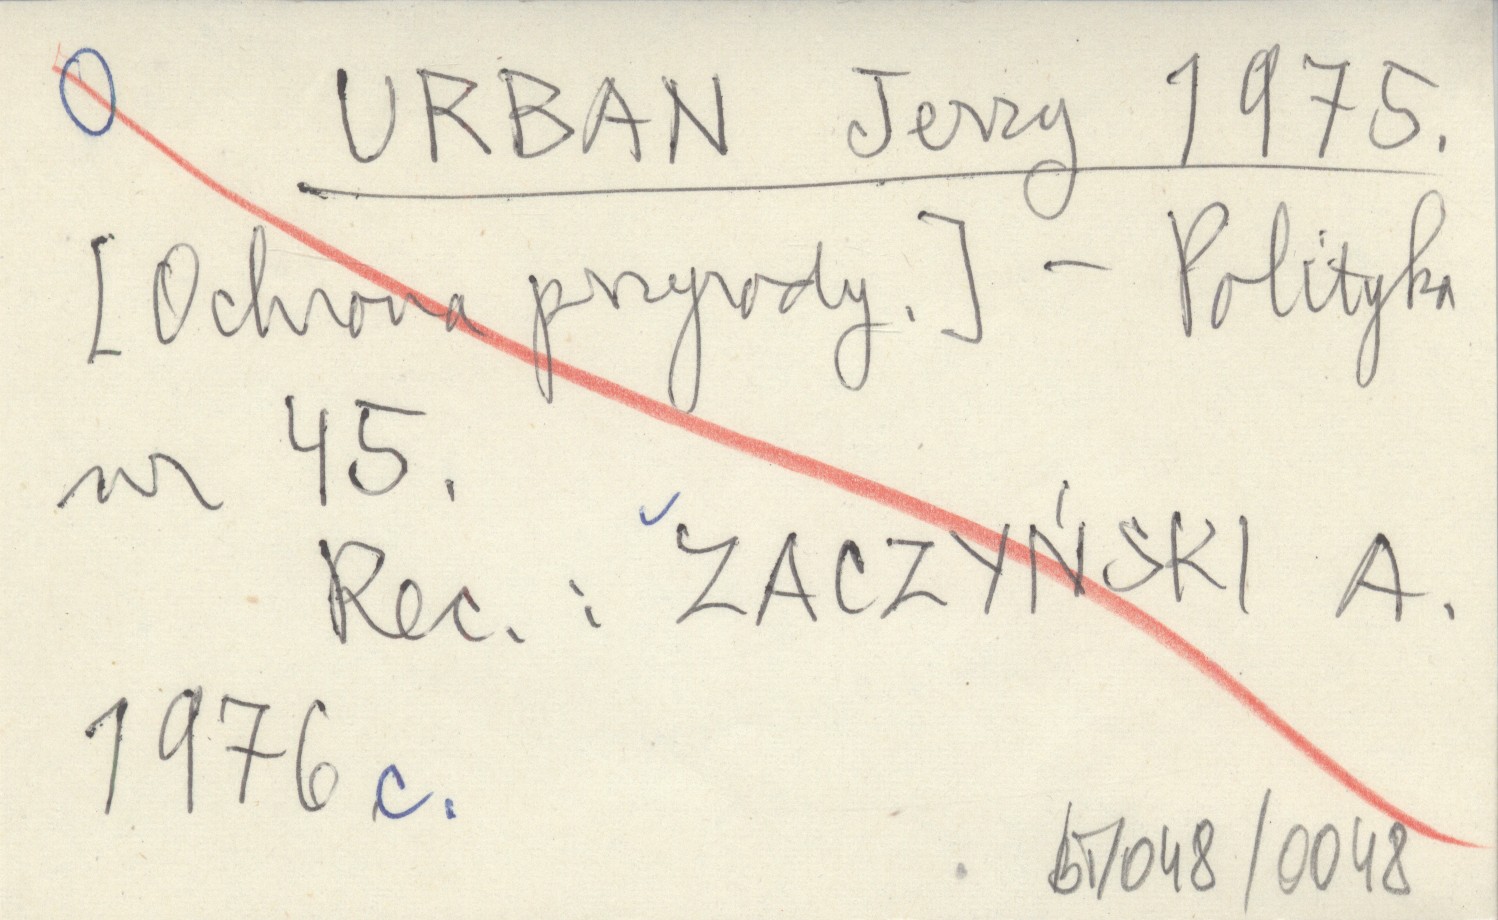 O URBAN Jerzy 1975.
[Ochrona przyrody.] - Polityka
nr 45.
Rec.: ZACZYŃSKI A.
1976 c.
bT/048/0048